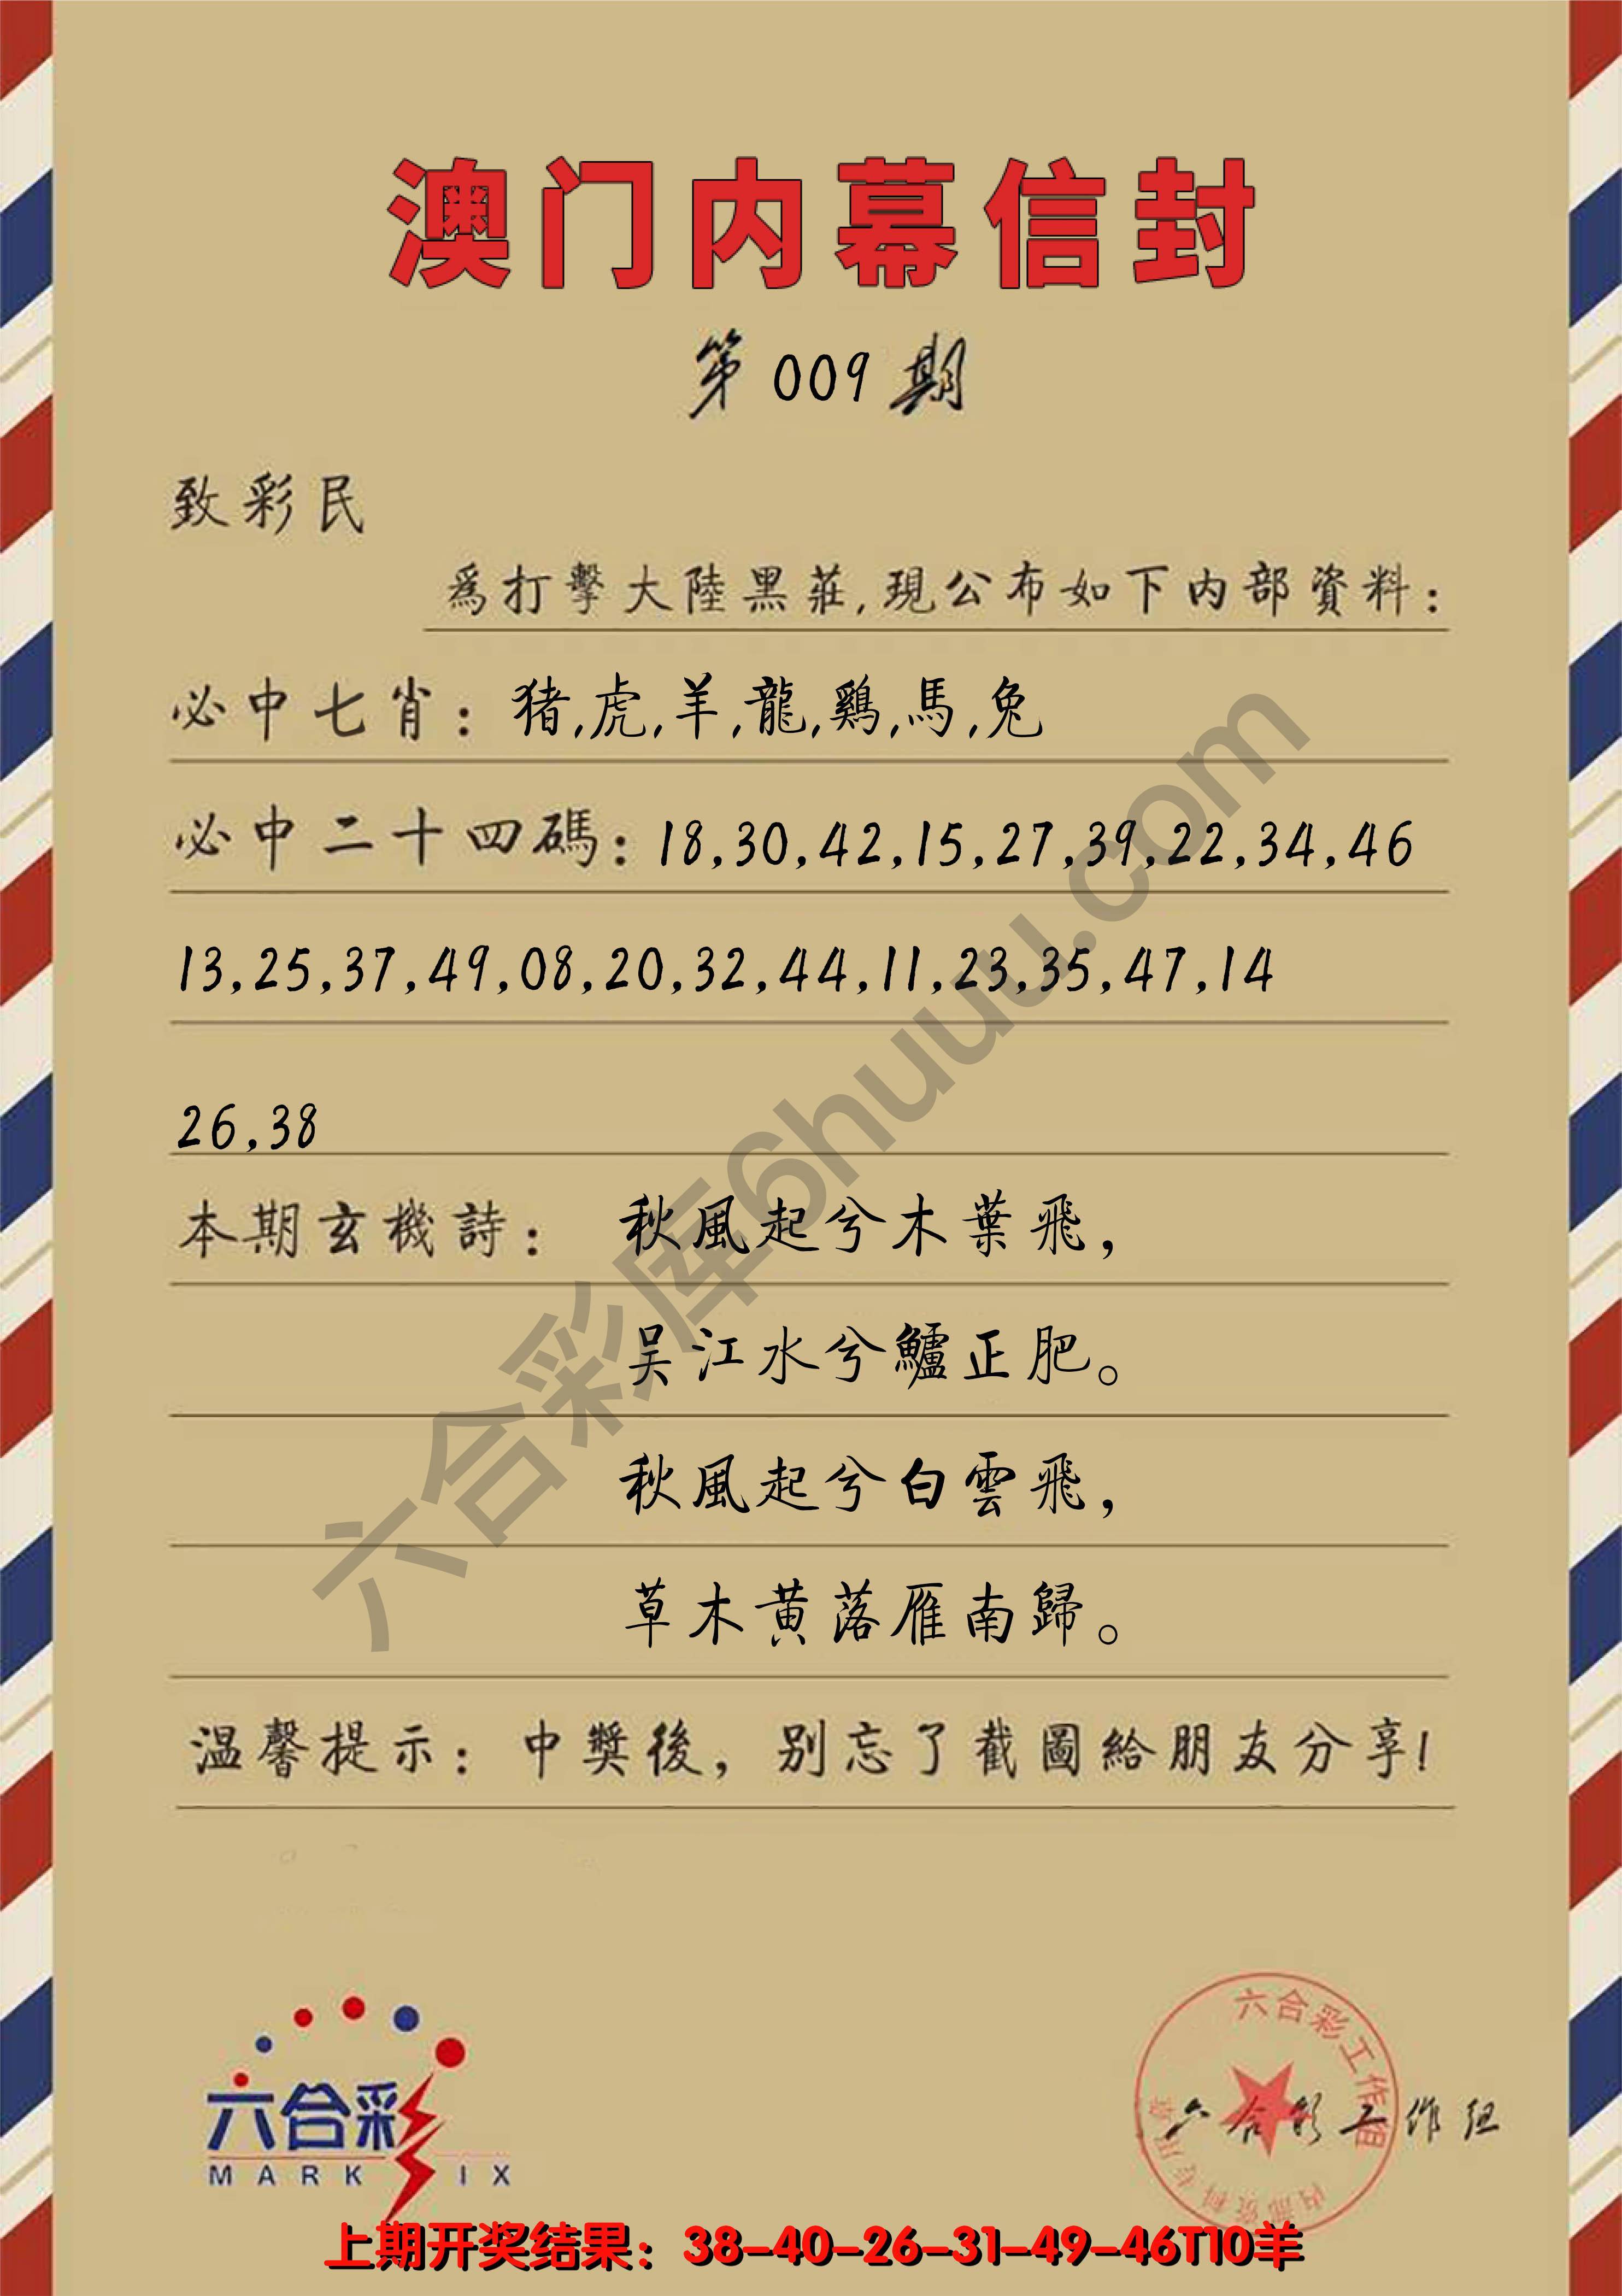 澳门内幕信封
第009期
致彩民
爲打擊大陸黑莊,現公布如下内部資料：
必中七肖：猪,虎,羊,龍,鷄,馬,兔
必中二十四碼：18,30,42,15,27,39,22,34,46
13,25,37,49,08,20,32,44,11,23,35,47,14
26,38
本期玄機詩：秋風起兮木葉飛，
吴江水兮鱸正肥。
秋風起兮白雲飛，
草木黄落雁南歸。
温馨提示：中獎後，别忘了截圖給朋友分享!
六合彩库6huuu.com
六合彩
MARK IX
六合彩工作组
内部资料专用章
六合彩工作组
上期开奖结果：38-40-26-31-49-46T10羊